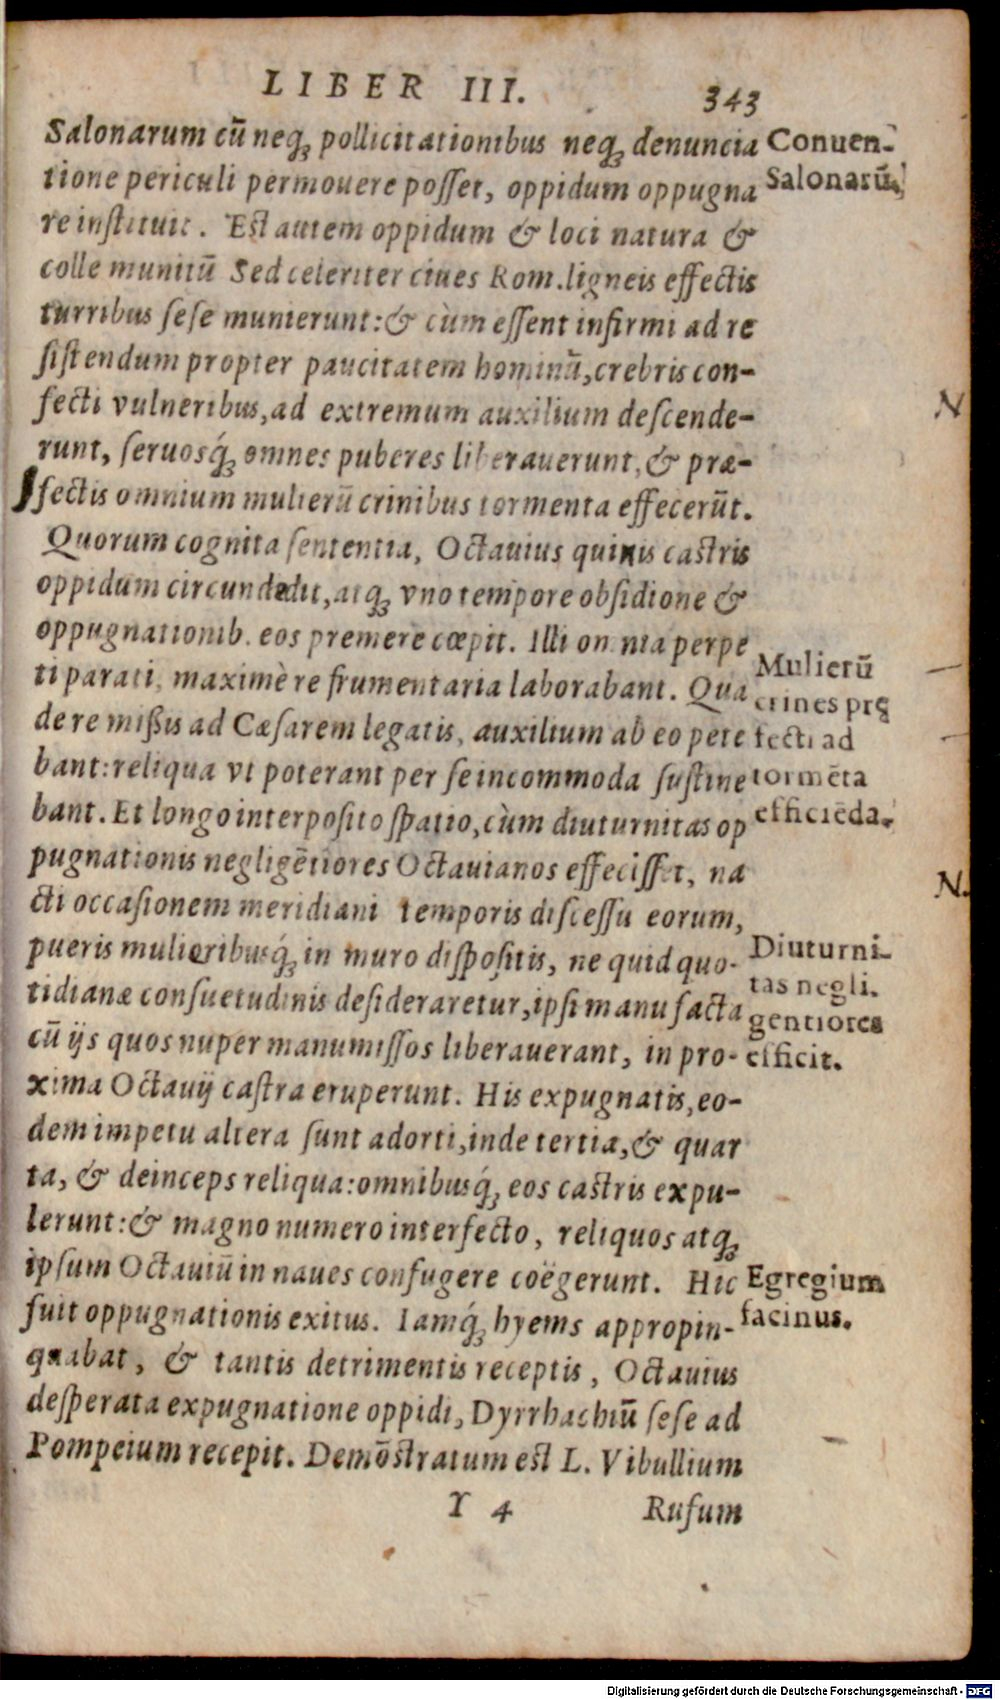 LIBER III. 343
Salonarum cū neq; pollicitationibus neq; denuncia
tione periculi permouere posset, oppidum oppugna
re instituit. Est autem oppidum & loci natura &
colle munitū Sed celeriter ciues Rom. ligneis effectis
turribus sese munierunt: & cùm essent infirmi ad re
sistendum propter paucitatem hominū, crebris con-
fecti vulneribus, ad extremum auxilium descende-
runt, seruosq́; omnes puberes liberauerunt, & præ-
fectis omnium mulierū crinibus tormenta effecerūt.
Quorum cognita sententia, Octauius quinis castris
oppidum circundedit, atq; vno tempore obsidione &
oppugnationib. eos premere cœpit. Illi omnia perpe
ti parati, maximè re frumentaria laborabant. Qua
de re missis ad Cæsarem legatis, auxilium ab eo pete
bant: reliqua vt poterant per se incommoda sustine
bant. Et longo interposito spatio, cùm diuturnitas op
pugnationis negligētiores Octauianos effecisset, na
cti occasionem meridiani temporis discessu eorum,
pueris mulieribusq́; in muro dispositis, ne quid quo-
tidianæ consuetudinis desideraretur, ipsi manu facta
cū ijs quos nuper manumissos liberauerant, in pro-
xima Octauij castra eruperunt. His expugnatis, eo-
dem impetu altera sunt adorti, inde tertia, & quar
ta, & deinceps reliqua: omnibusq́; eos castris expu-
lerunt: & magno numero interfecto, reliquos atq;
ipsum Octauiū in naues confugere coëgerunt. Hic
fuit oppugnationis exitus. Iamq́; hyems appropin-
quabat, & tantis detrimentis receptis, Octauius
desperata expugnatione oppidi, Dyrrhachiū sese ad
Pompeium recepit. Demōstratum est L. Vibullium
Y 4 Rufum
Conuen-
Salonarū.
N
Mulierū
crines prę
fecti ad
tormēta
efficiēda.
N.
Diuturni-
tas negli.
gentiores
efficit.
Egregium
facinus.
Digitalisierung gefördert durch die Deutsche Forschungsgemeinschaft - DFG